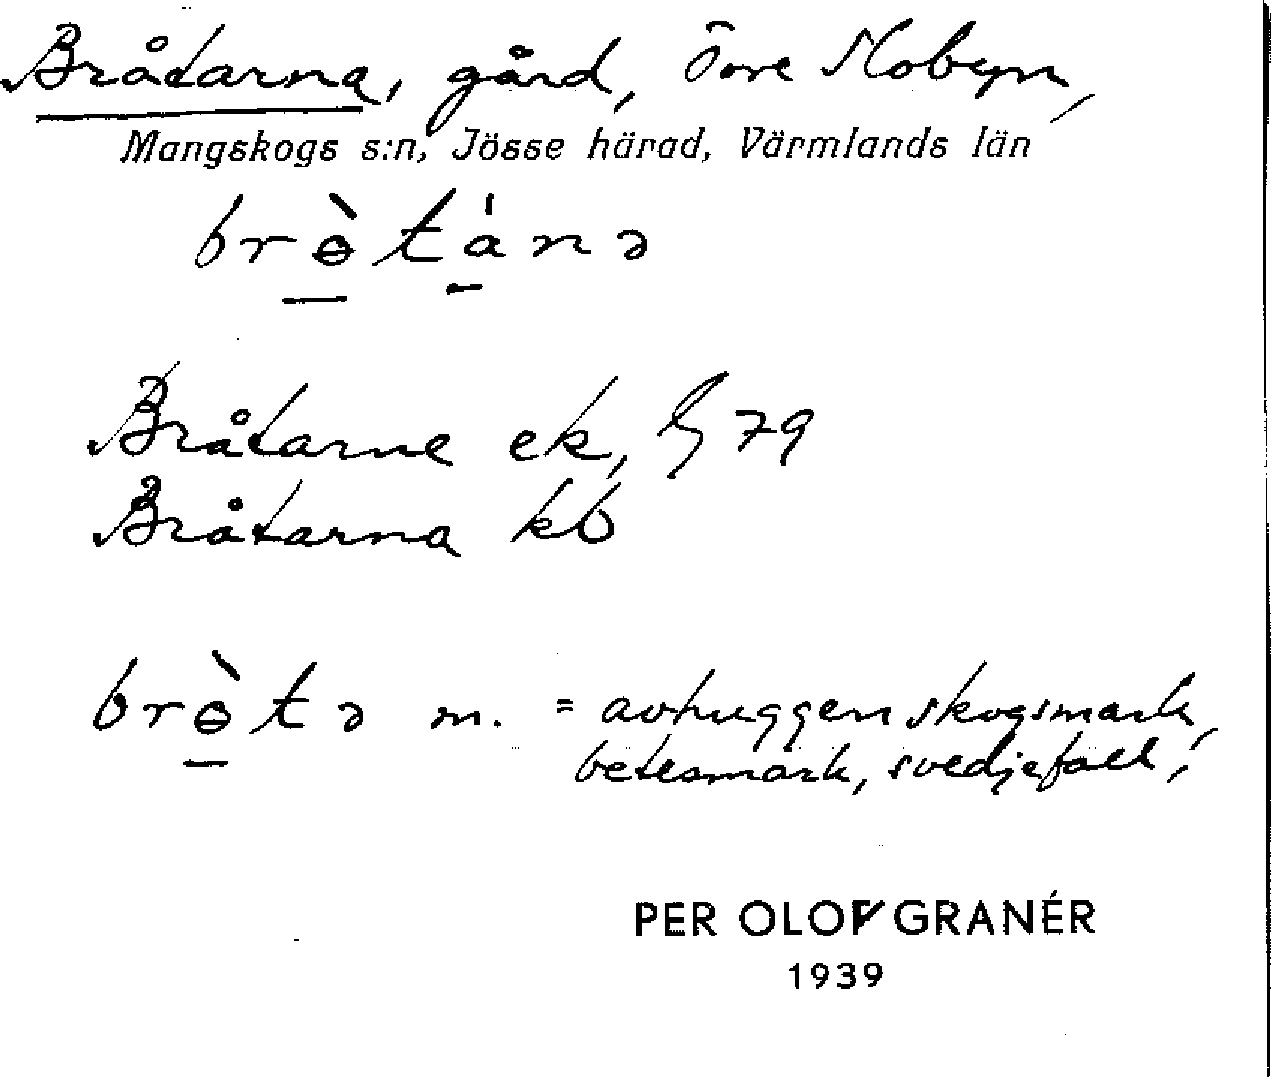 Bråtarna, gård, Övre Mobyn,
Mangskogs s:n, Jösse härad, Värmlands län
brɵ̀tánə
Bråtarne ek, G 79
Bråtarna kb
brɵ̀tə m. = avhuggen skogsmark,
betesmark, svedjefall;
PER OLOF GRANÉR
1939